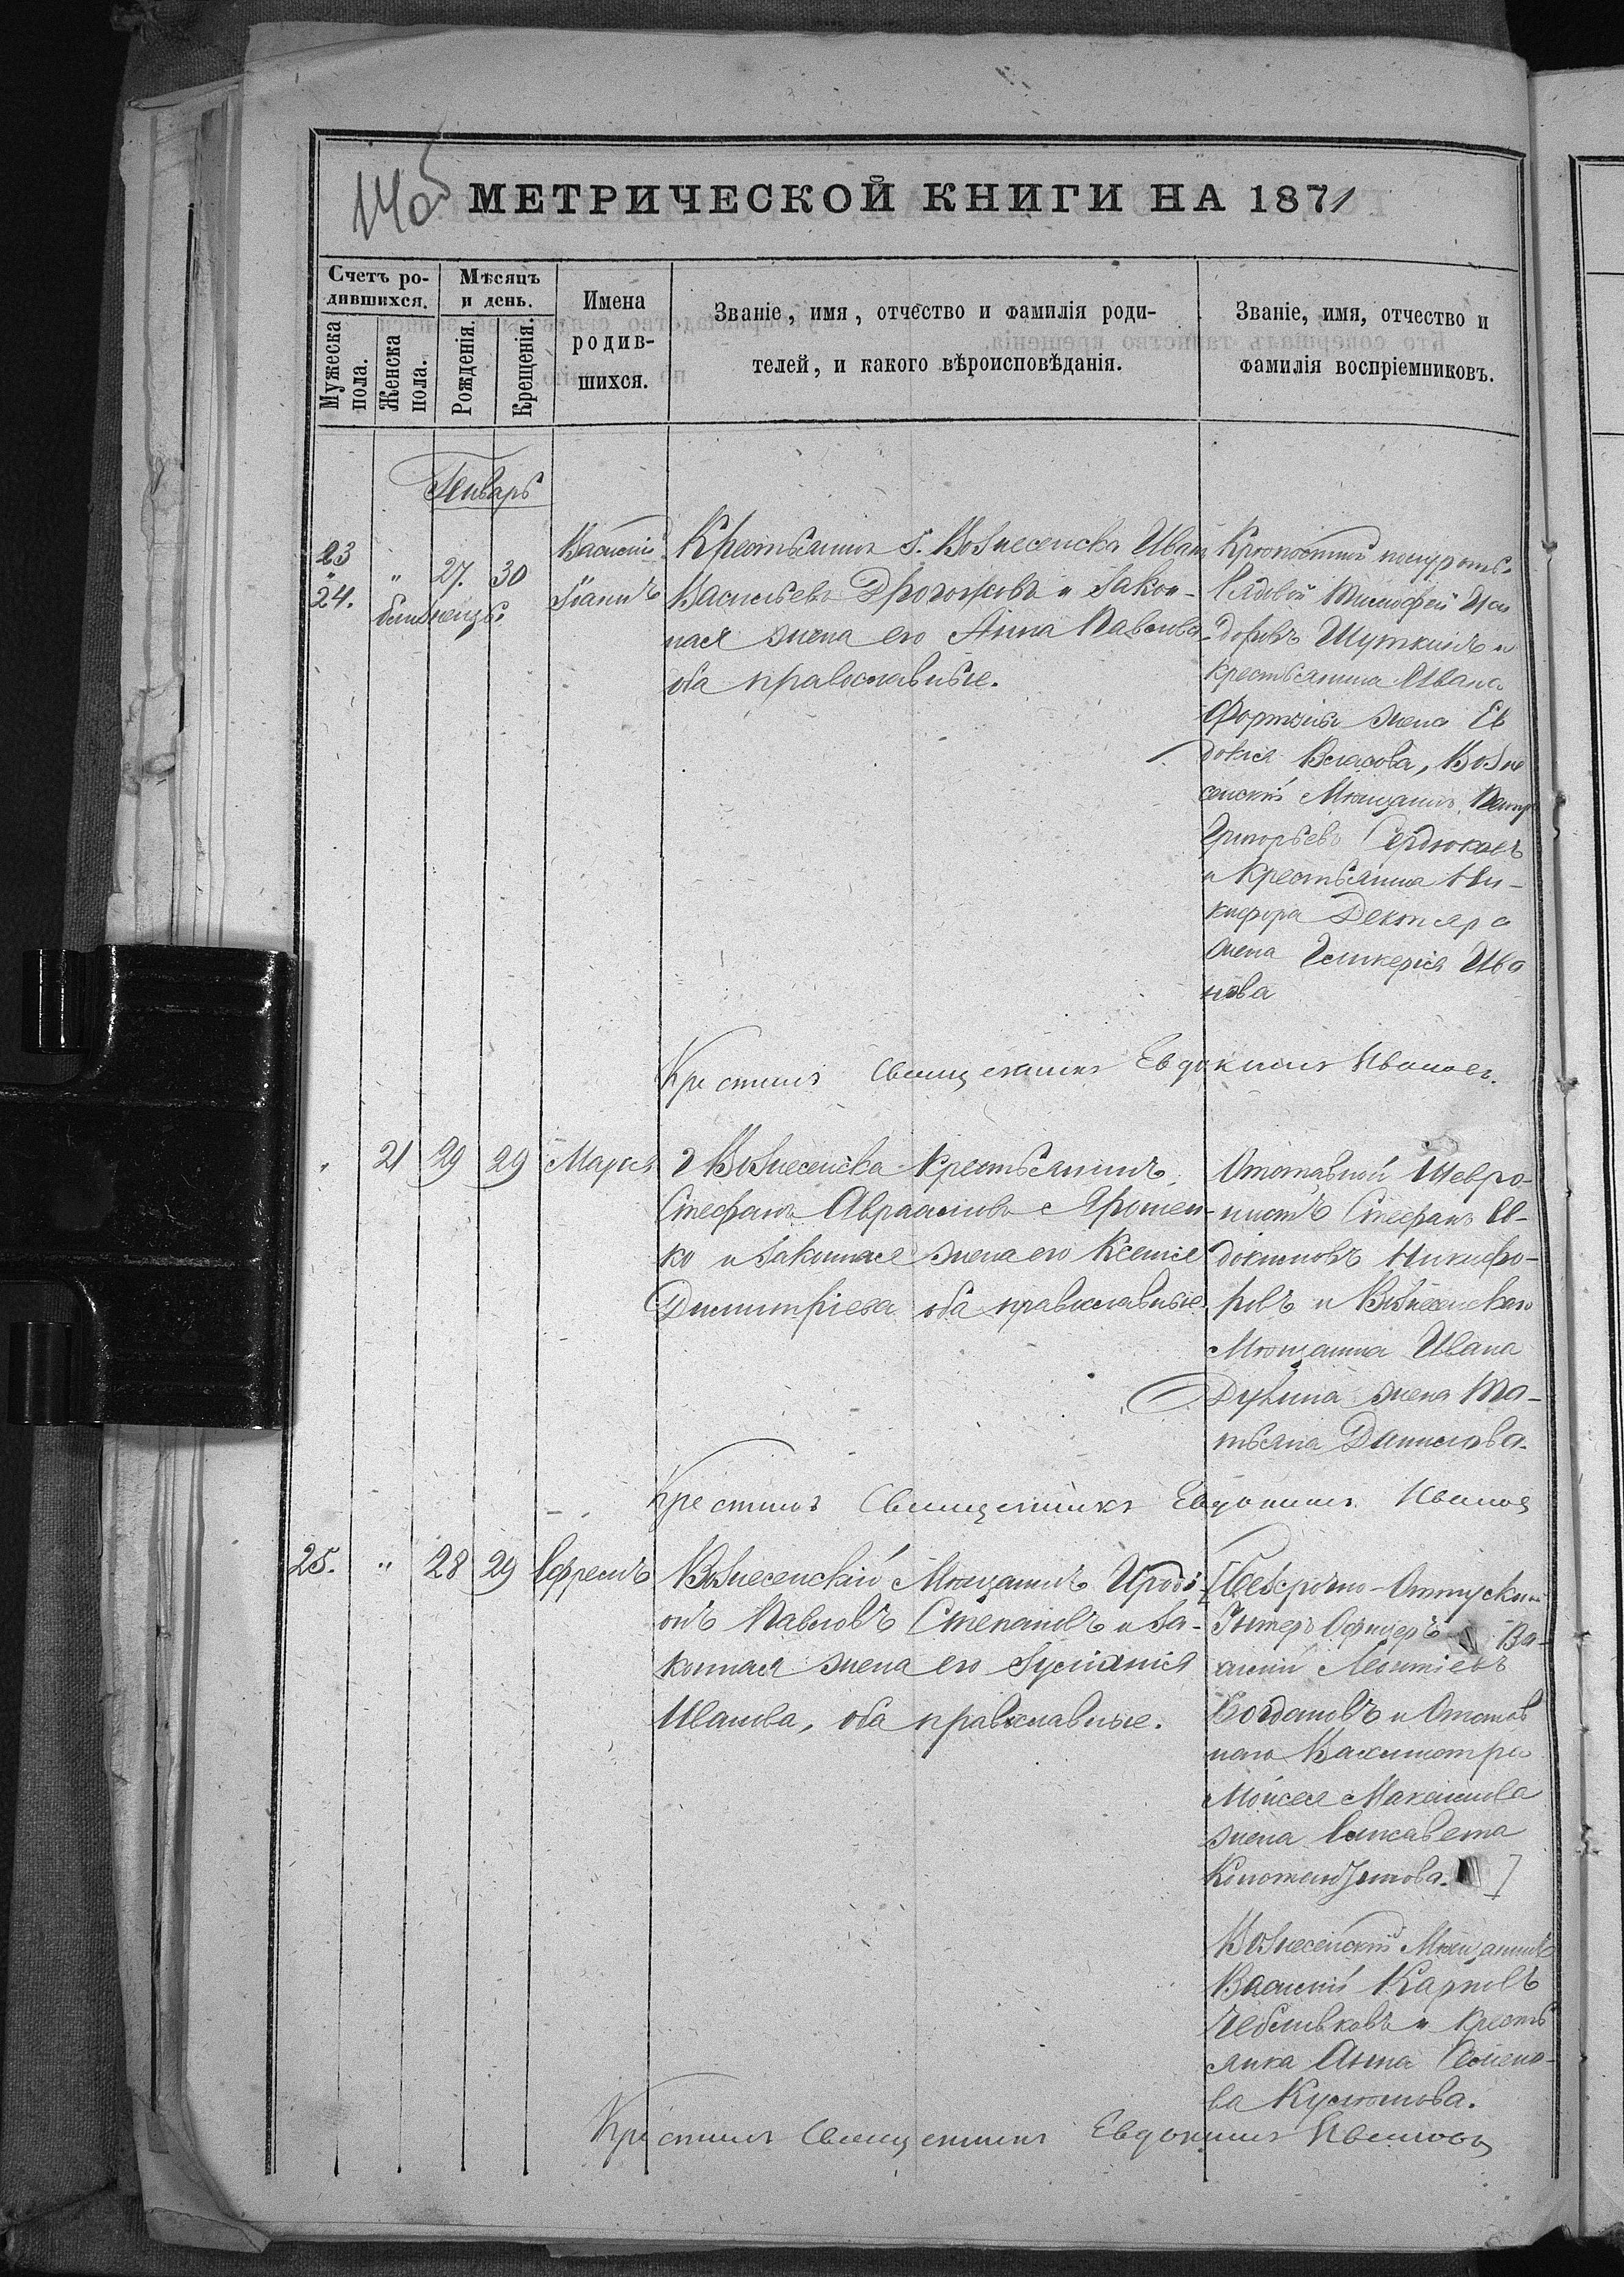 140б
МЕТРИЧЕСКОЙ КНИГИ НА 1871
Счетъ ро-
дившихся.
Мужеска
пола.
Женска
пола.
Мѣсяцъ
и день.
Рожденія.
Крещенія.
Имена
родив-
шихся.
Званіе, имя, отчество и фамилія роди-
телей, и какого вѣроисповѣданія.
Званіе, имя, отчество и
фамилія воспріемниковъ.
Генварь
23
"
24.
"
близнецы.
27.
30
Василій
Іоаннъ
Крестьянинъ г. Вознесенска Иван
Васильевъ Дрогожовъ и закон-
ная жена его Анна Павлова
оба православные.
Крѣпостной
Рядовой Тимофей Иси
доровъ Шуткинъ и
крестьянина Ивана
жена Ев
докія Власова, Возне
сенскій Мѣщанинъ Петр
Григорьевъ Сердюковъ
и Крестьянина Ни-
кифора Дектяра
жена Гликерія Ива
нова
Крестилъ Священникъ Евдокимъ Иванов.
"
21
29
29
Марія
г Вознесенска Крестьянинъ
Стефанъ Авраамовъ Ярошен-
ко и законная жена его Ксенія
Димитріева оба православные.
Отставной Шевро-
нистъ Стефанъ Ев-
докимовъ Никифо-
ровъ и Вознесенскаго
Мѣщанина Ивана
Дувина жена Та-
тьяна Данилова.
Крестилъ Священникъ Евдокимъ Иванов
25.
"
28
29
Ефремъ
Вознесенскій Мѣщанинъ Ироді-
онъ Павловъ Степановъ и за-
конная жена его Іуліанія
Иванова, оба православные.
[Безсрочно-Отпускный
Унтеръ Офицеръ Ва-
силій Леонтіевъ
Богдановъ и Отстав
наго Вахмистра
Моисея Максимова
жена Елисавета
Константинова. ]
Вознесенскій Мѣщанинъ
Василій Карповъ
и Кресть
янка Анна Семено-
ва
Крестилъ Священникъ Евдокимъ Иванов